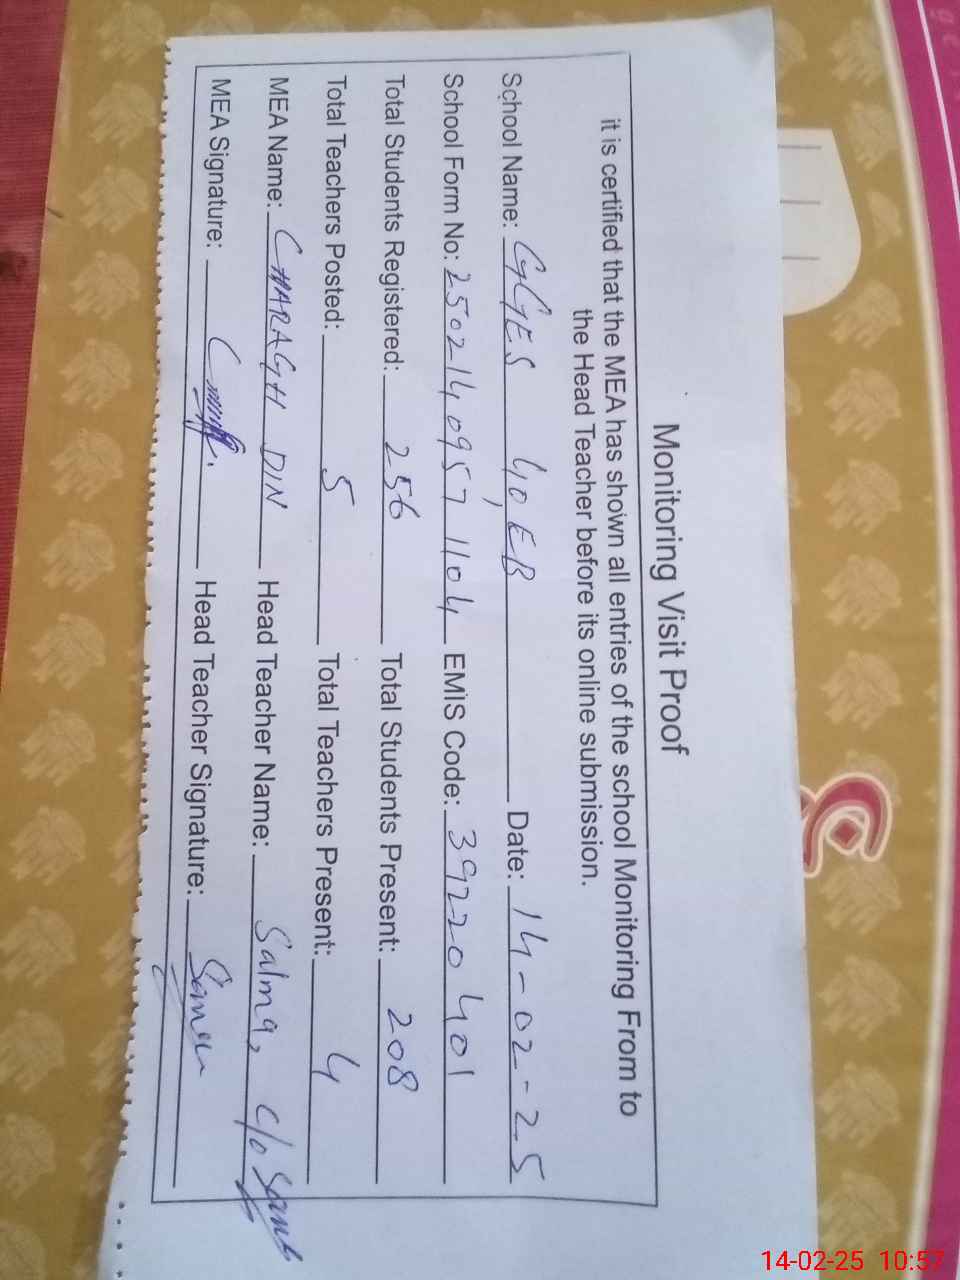 Monitoring Visit Proof
it is certified that the MEA has shown all entries of the school Monitoring From to
the Head Teacher before its online submission.
School Name: GGES 40, EB Date: 14-02-25
School Form No: 2502140957 1104 EMIS Code: 39220401
Total Students Registered: 256 Total Students Present: 208
Total Teachers Posted: 5 Total Teachers Present: 4
MEA Name: CHARAGH DIN Head Teacher Name: Salma, c/o
MEA Signature: Head Teacher Signature:
14-02-25 10:57